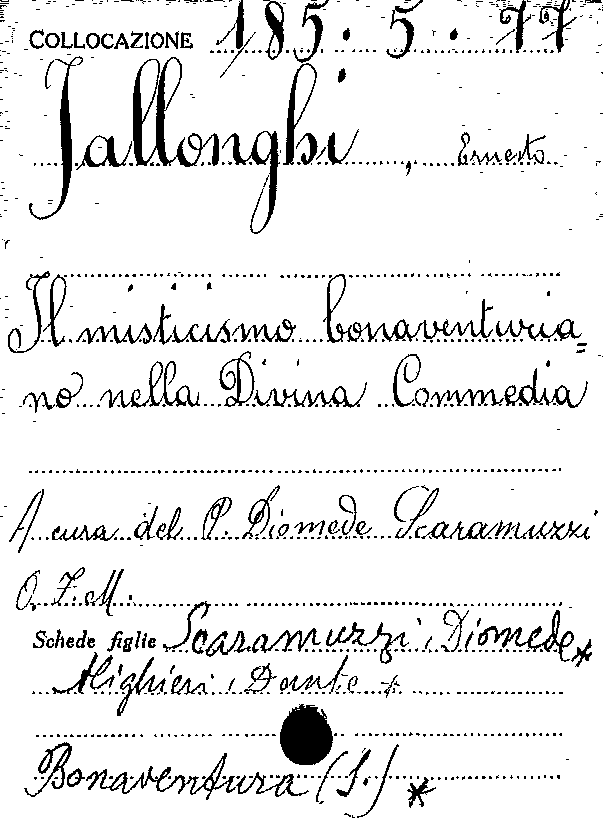 COLLOCAZIONE 185.5.77
Jallonghi, Ernesto
Il misticismo bonaventuria=
no nella Divina Commedia
A cura del P. Diomede Scaramuzzi
O.F.M.
Schede figlie Scaramuzzi, Diomede*
Alighieri, Dante *
Bonaventura (S.) *